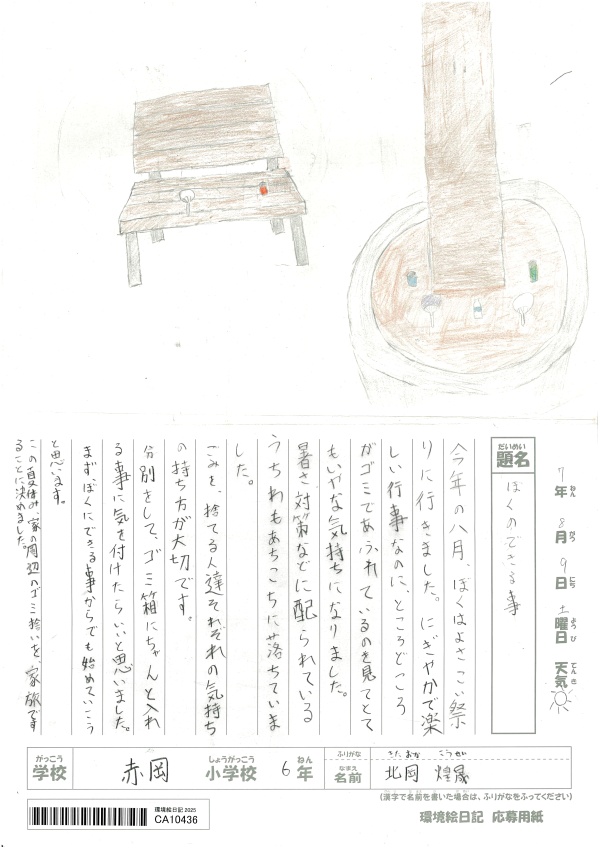 7年 8月 9日 土曜日 天気
ねん がつ にち ようび てんき
だいめい
題名
ぼくのできる事
今年の八月、ぼくはよさこい祭
りに行きました。にぎやかで楽
しい行事なのに、ところどころ
がゴミであふれているのを見てとて
もいやな気持ちになりました。
暑さ対策などに配られている
うちわもあちこちに落ちていま
した。
ごみを、捨てる人達それぞれの気持ち
の持ち方が大切です。
分別をして、ゴミ箱にちゃんと入れ
る事に気を付けたらいいと思いました。
まず、ぼくにできる事からでも始めていこう
と思います。
この夏休み、家の周辺のゴミ拾いを、家族です
ることに決めました。
がっこう
学校
赤岡
しょうがっこう
小学校
6
ねん
年
ふりがな
きたおか こうせい
なまえ
名前
北岡 煌晟
(漢字で名前を書いた場合は、ふりがなをふってください)
環境絵日記 2025
CA10436
環境絵日記 応募用紙